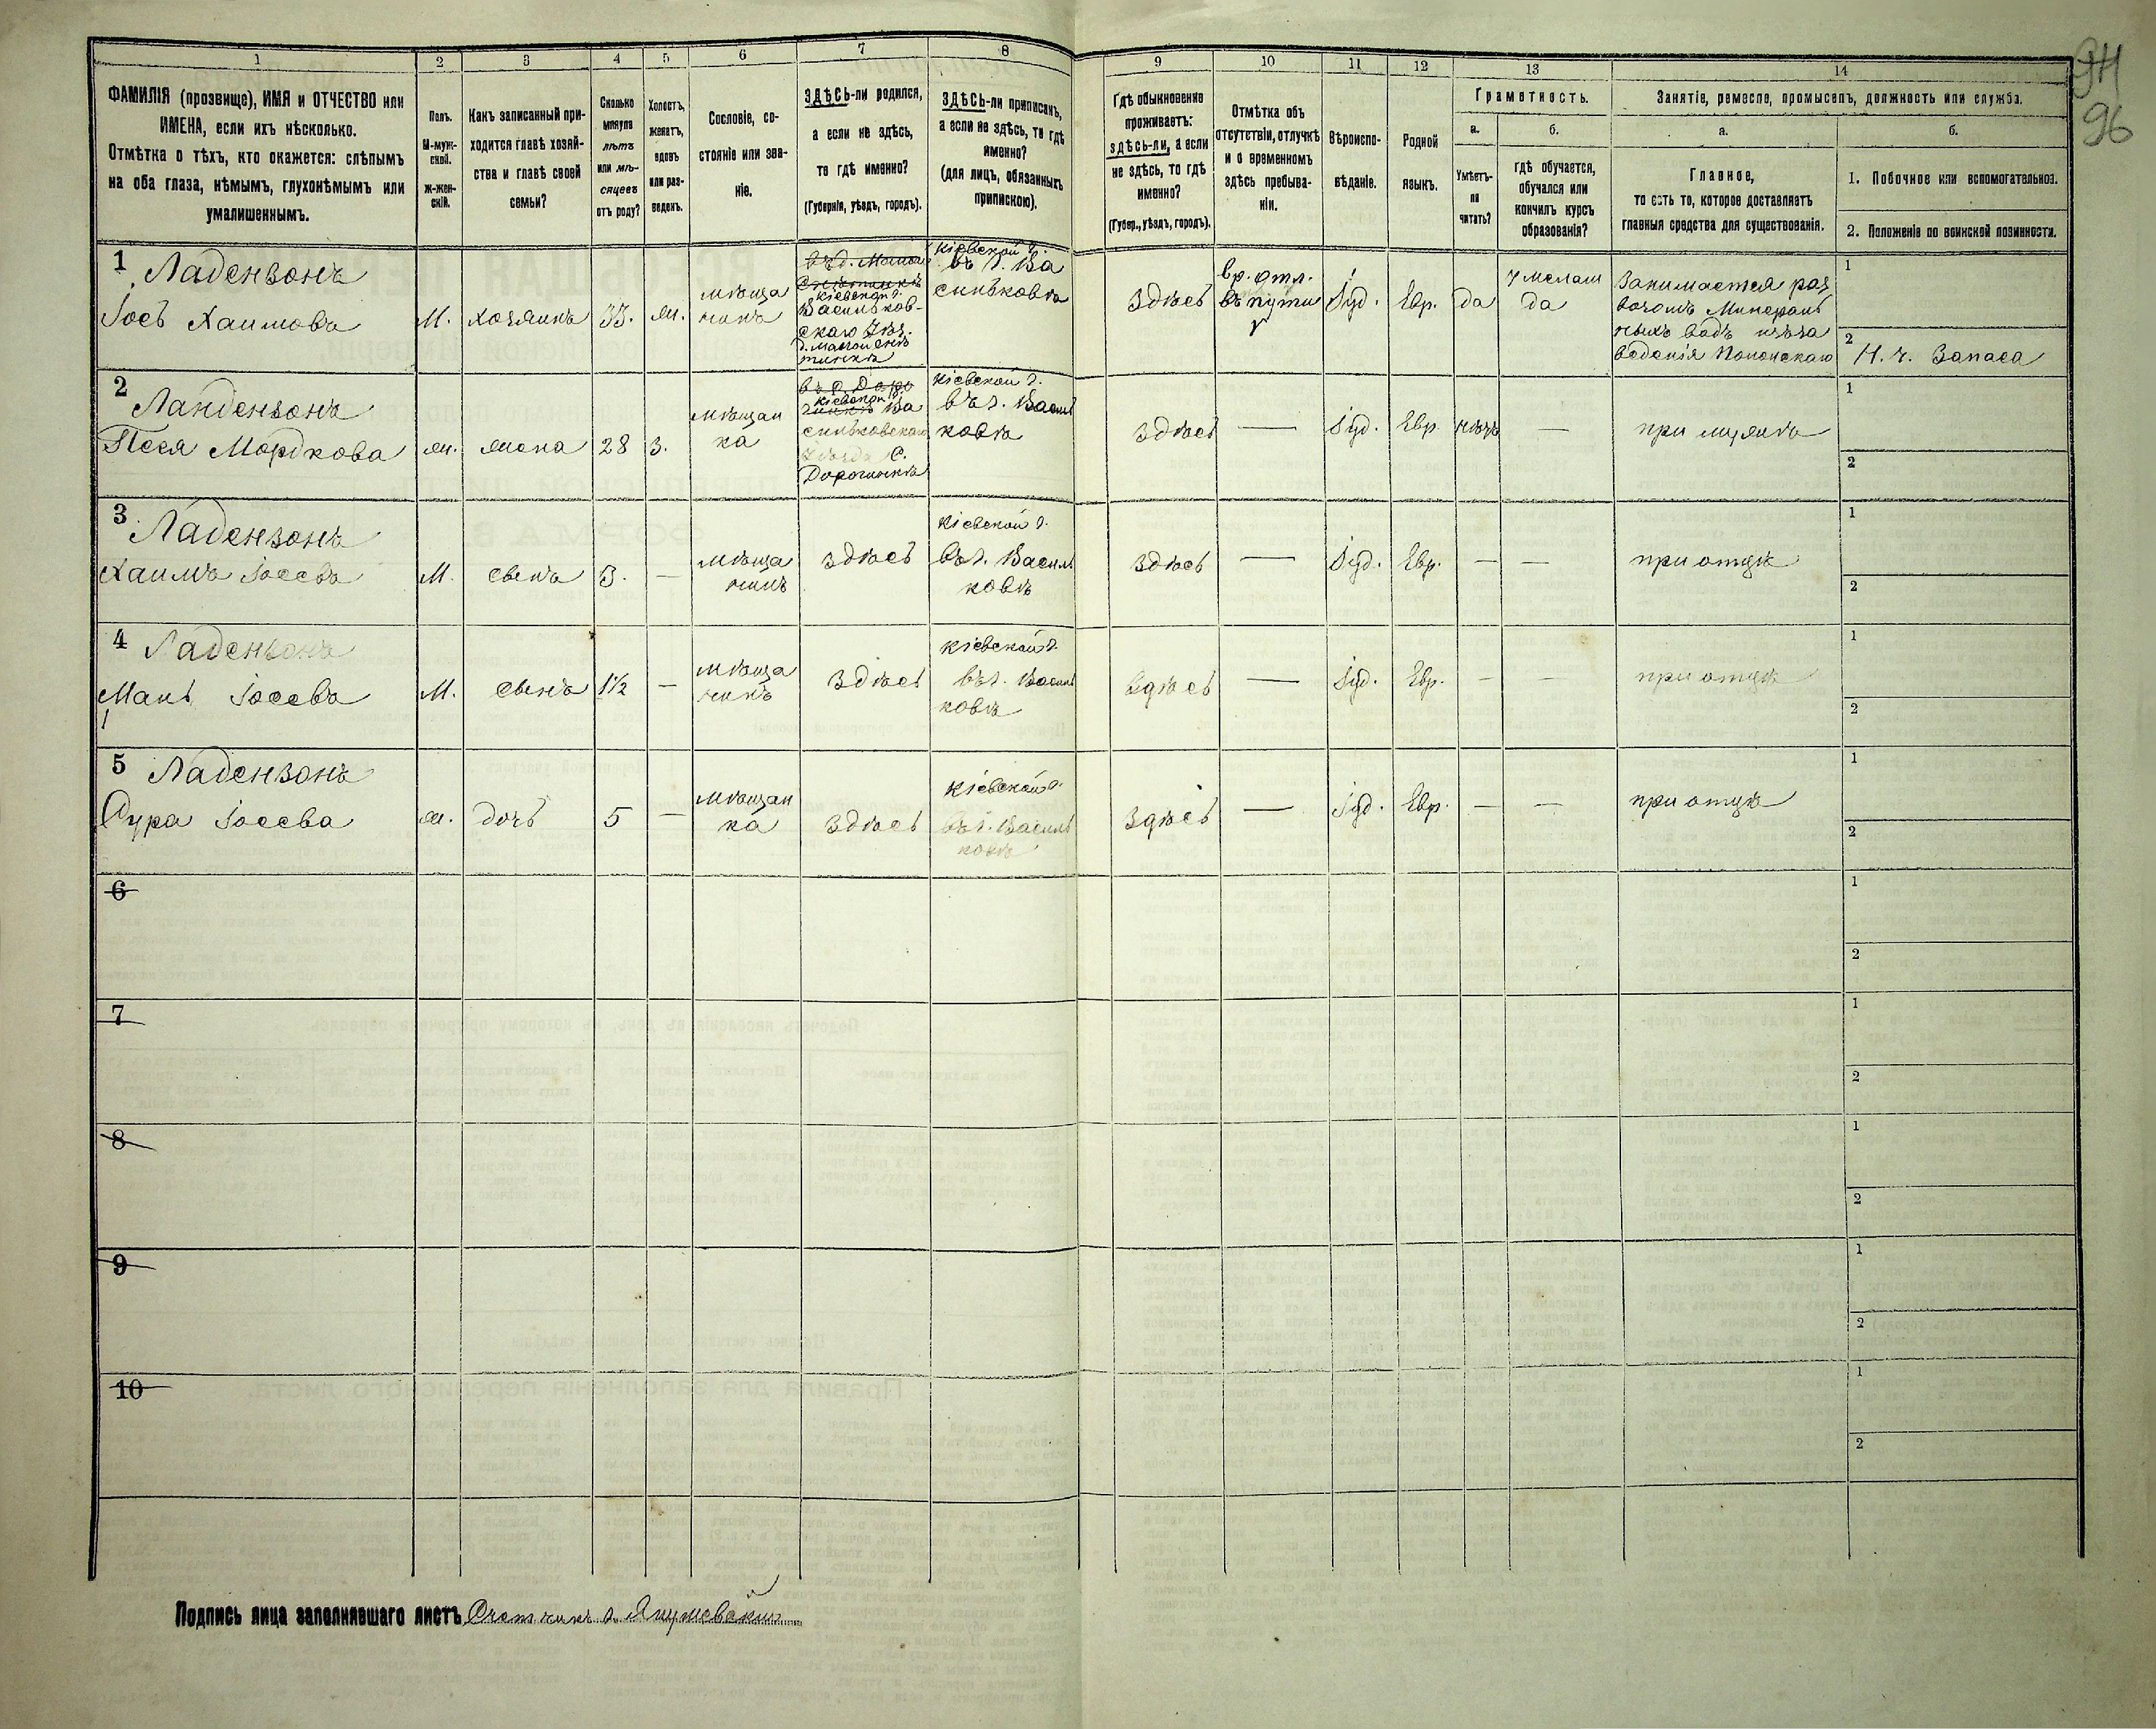 94
96
1
2
3
4
5
6
7
8
9
10
11
12
13
14
ФАМИЛІЯ (прозвище), ИМЯ и ОТЧЕСТВО или
ИМЕНА, если ихъ нѣсколько.
Отмѣтка о тѣхъ, кто окажется: слѣпымъ
на оба глаза, нѣмымъ, глухонѣмымъ или
умалишеннымъ.
Полъ.
М-муж-
ской.
Ж-жен-
скій.
Какъ записанный при-
ходится главѣ хозяй-
ства и главѣ своей
семьи?
Сколько
минуло
лѣтъ
или мѣ-
сяцевъ
отъ роду?
Холостъ,
женатъ,
вдовъ
или раз-
веденъ.
Сословіе, со-
стояніе или зва-
ніе.
ЗДѢСЬ-ли родился,
а если не здѣсь,
то гдѣ именно?
(Губернія, уѣздъ, городъ).
ЗДѢСЬ-ли приписанъ,
а если не здѣсь, то гдѣ
именно?
(для лицъ, обязанныхъ
припискою).
Гдѣ обыкновенно
проживаетъ:
здѣсь-ли, а если
не здѣсь, то гдѣ
именно?
(Губер., уѣздъ, городъ).
Отмѣтка объ
отсутствіи, отлучкѣ
и о временномъ
здѣсь пребыва-
ніи.
Вѣроиспо-
вѣданіе.
Родной
языкъ.
Грамотность.
а.
Умѣетъ-
ли
читать?
б.
гдѣ обучается,
обучался или
кончилъ курсъ
образованія?
Занятіе, ремесло, промыселъ, должность или служба.
а.
Главное,
то есть то, которое доставляетъ
главныя средства для существованія.
б.
1. Побочное или вспомогательное.
2. Положеніе по воинской повинности.
1
Ладензонъ
Іось Хаимовъ
М.
хозяинъ
33.
ж.
мѣща
нинъ
Кіевской г.
Васильков-
скаго Уѣз.
Кіевской г.
въ г. Ва
сильковѣ
здѣсь
вр. отл.
въ пути
Іуд.
Евр.
да
да
Занимается раз
возомъ Минераль
ныхъ водъ изъ за
веденія
1
2
Н. ч. Запаса
2
Ландензонъ
Песя Мордкова
ж.
жена
28
З.
мѣщан
ка
Кіевской г.
Ва
сильковскаго
Уѣзда С.
Кіевской г.
въ г. Василь
ковѣ
здѣсь
—
Іуд.
Евр.
нѣтъ
—
при мужѣ
1
2
3
Ладензонъ
Хаимъ Іосевъ
М.
сынъ
3.
—
мѣща
нинъ
здѣсь
Кіевской г.
въ г. Василь
ковѣ
здѣсь
—
Іуд.
Евр.
—
—
при отцѣ
1
2
4
Ладензонъ
Мань Іосевъ
М.
сынъ
1½
—
мѣща
нинъ
здѣсь
Кіевской г.
въ г. Василь
ковѣ
здѣсь
—
Іуд.
Евр.
—
—
при отцѣ
1
2
5
Ладензонъ
Сура Іосева
ж.
дочь
5
—
мѣщан
ка
здѣсь
Кіевской г.
въ г. Василь
ковѣ
здѣсь
—
Іуд.
Евр.
—
—
при отцѣ
1
2
6
1
2
7
1
2
8
1
2
9
1
2
10
1
2
Подпись лица заполнявшаго листъ Счетчикъ